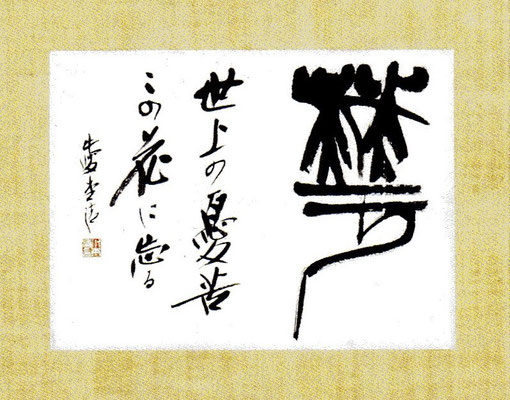 華
世上の憂苦
この花に忘る